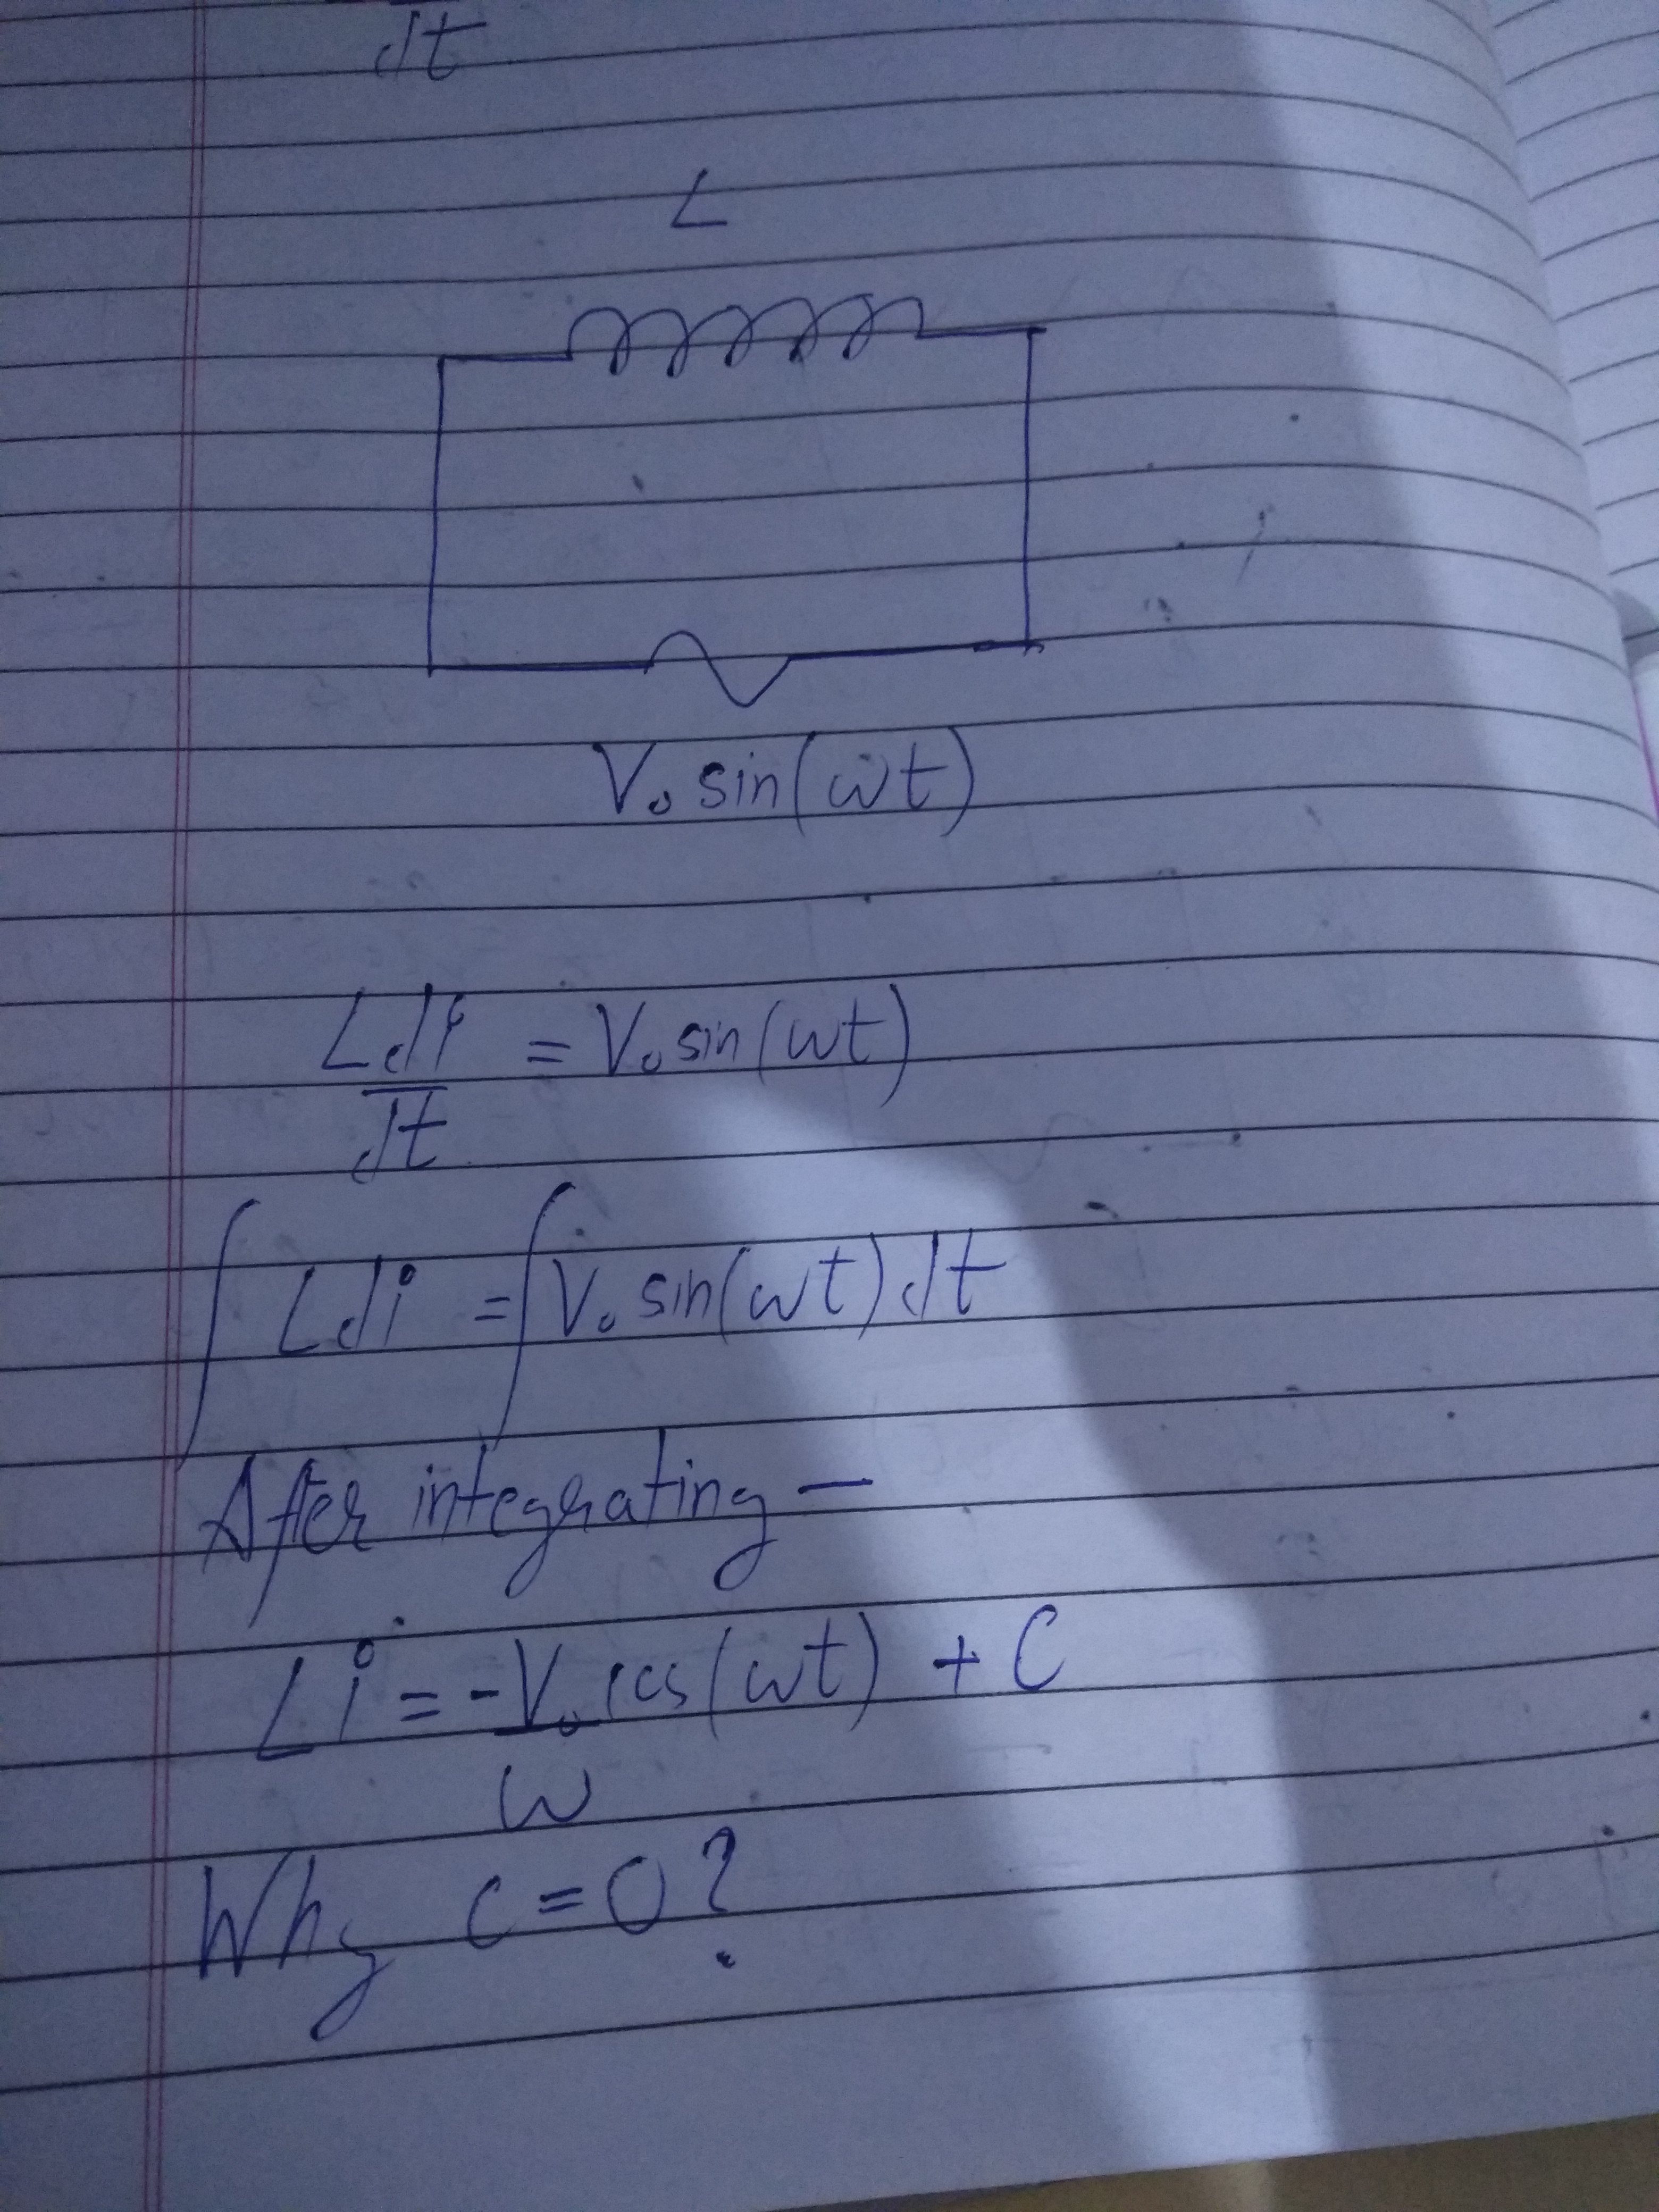 dt
L
V₀ sin(ωt)
L di/dt = V₀ sin(ωt)
∫ L di = ∫ V₀ sin(ωt) dt
After integrating —
Li = -V₀/ω cos(ωt) + C
Why C = 0?